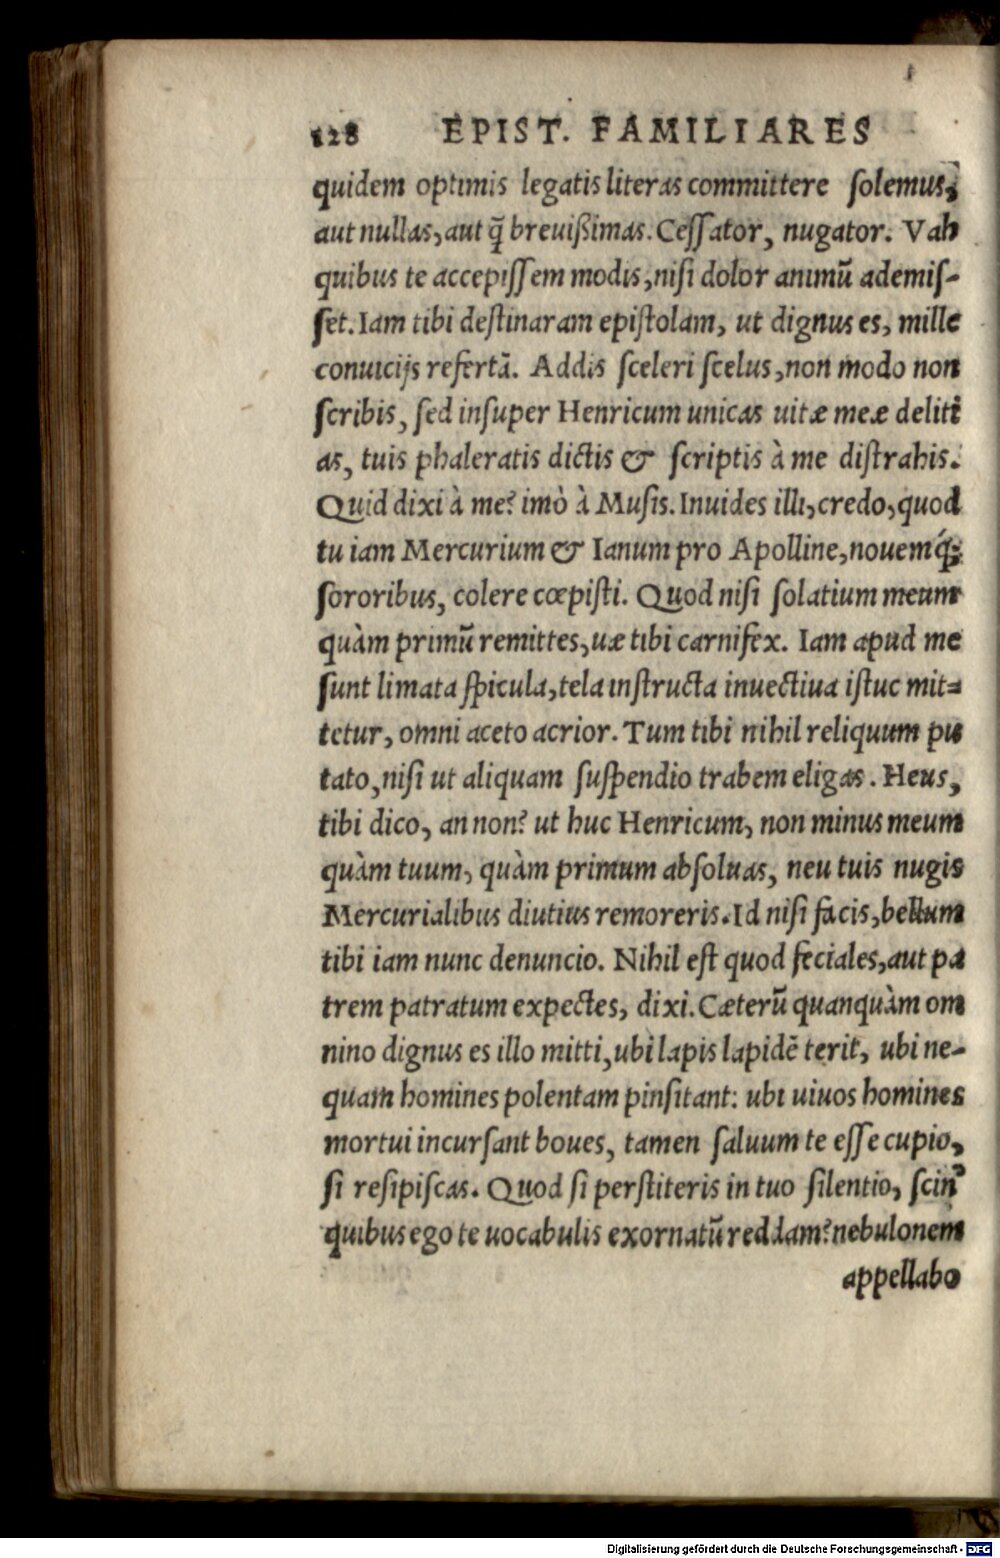 128 EPIST. FAMILIARES
quidem optimis legatis literas committere ſolemus,
aut nullas, aut q̃ breuißimas. Ceſſator, nugator. Vah
quibus te accepiſſem modis, niſi dolor animũ ademiſ-
ſet. Iam tibi deſtinaram epiſtolam, ut dignus es, mille
conuicijs refertã. Addis ſceleri ſcelus, non modo non
ſcribis, ſed inſuper Henricum unicas uitæ meæ deliti
as, tuis phaleratis dictis & ſcriptis à me diſtrahis.
Quid dixi à me? imò à Muſis. Inuides illi, credo, quod
tu iam Mercurium & Ianum pro Apolline, nouemq́;
ſororibus, colere cœpiſti. Quod niſi ſolatium meum
quàm primũ remittes, uæ tibi carnifex. Iam apud me
ſunt limata ſpicula, tela inſtructa inuectiua iſtuc mit-
tetur, omni aceto acrior. Tum tibi nihil reliquum pu
tato, niſi ut aliquam ſuſpendio trabem eligas. Heus,
tibi dico, an non? ut huc Henricum, non minus meum
quàm tuum, quàm primum abſoluas, neu tuis nugis
Mercurialibus diutius remoreris. Id niſi facis, bellum
tibi iam nunc denuncio. Nihil eſt quod feciales, aut pa
trem patratum expectes, dixi. Cæterũ quanquàm om
nino dignus es illo mitti, ubi lapis lapidẽ terit, ubi ne-
quam homines polentam pinſitant: ubi uiuos homines
mortui incurſant boues, tamen ſaluum te eſſe cupio,
ſi reſipiſcas. Quod ſi perſtiteris in tuo ſilentio, ſcin'
quibus ego te uocabulis exornatũ reddam? nebulonem
appellabo
Digitalisierung gefördert durch die Deutsche Forschungsgemeinschaft - DFG